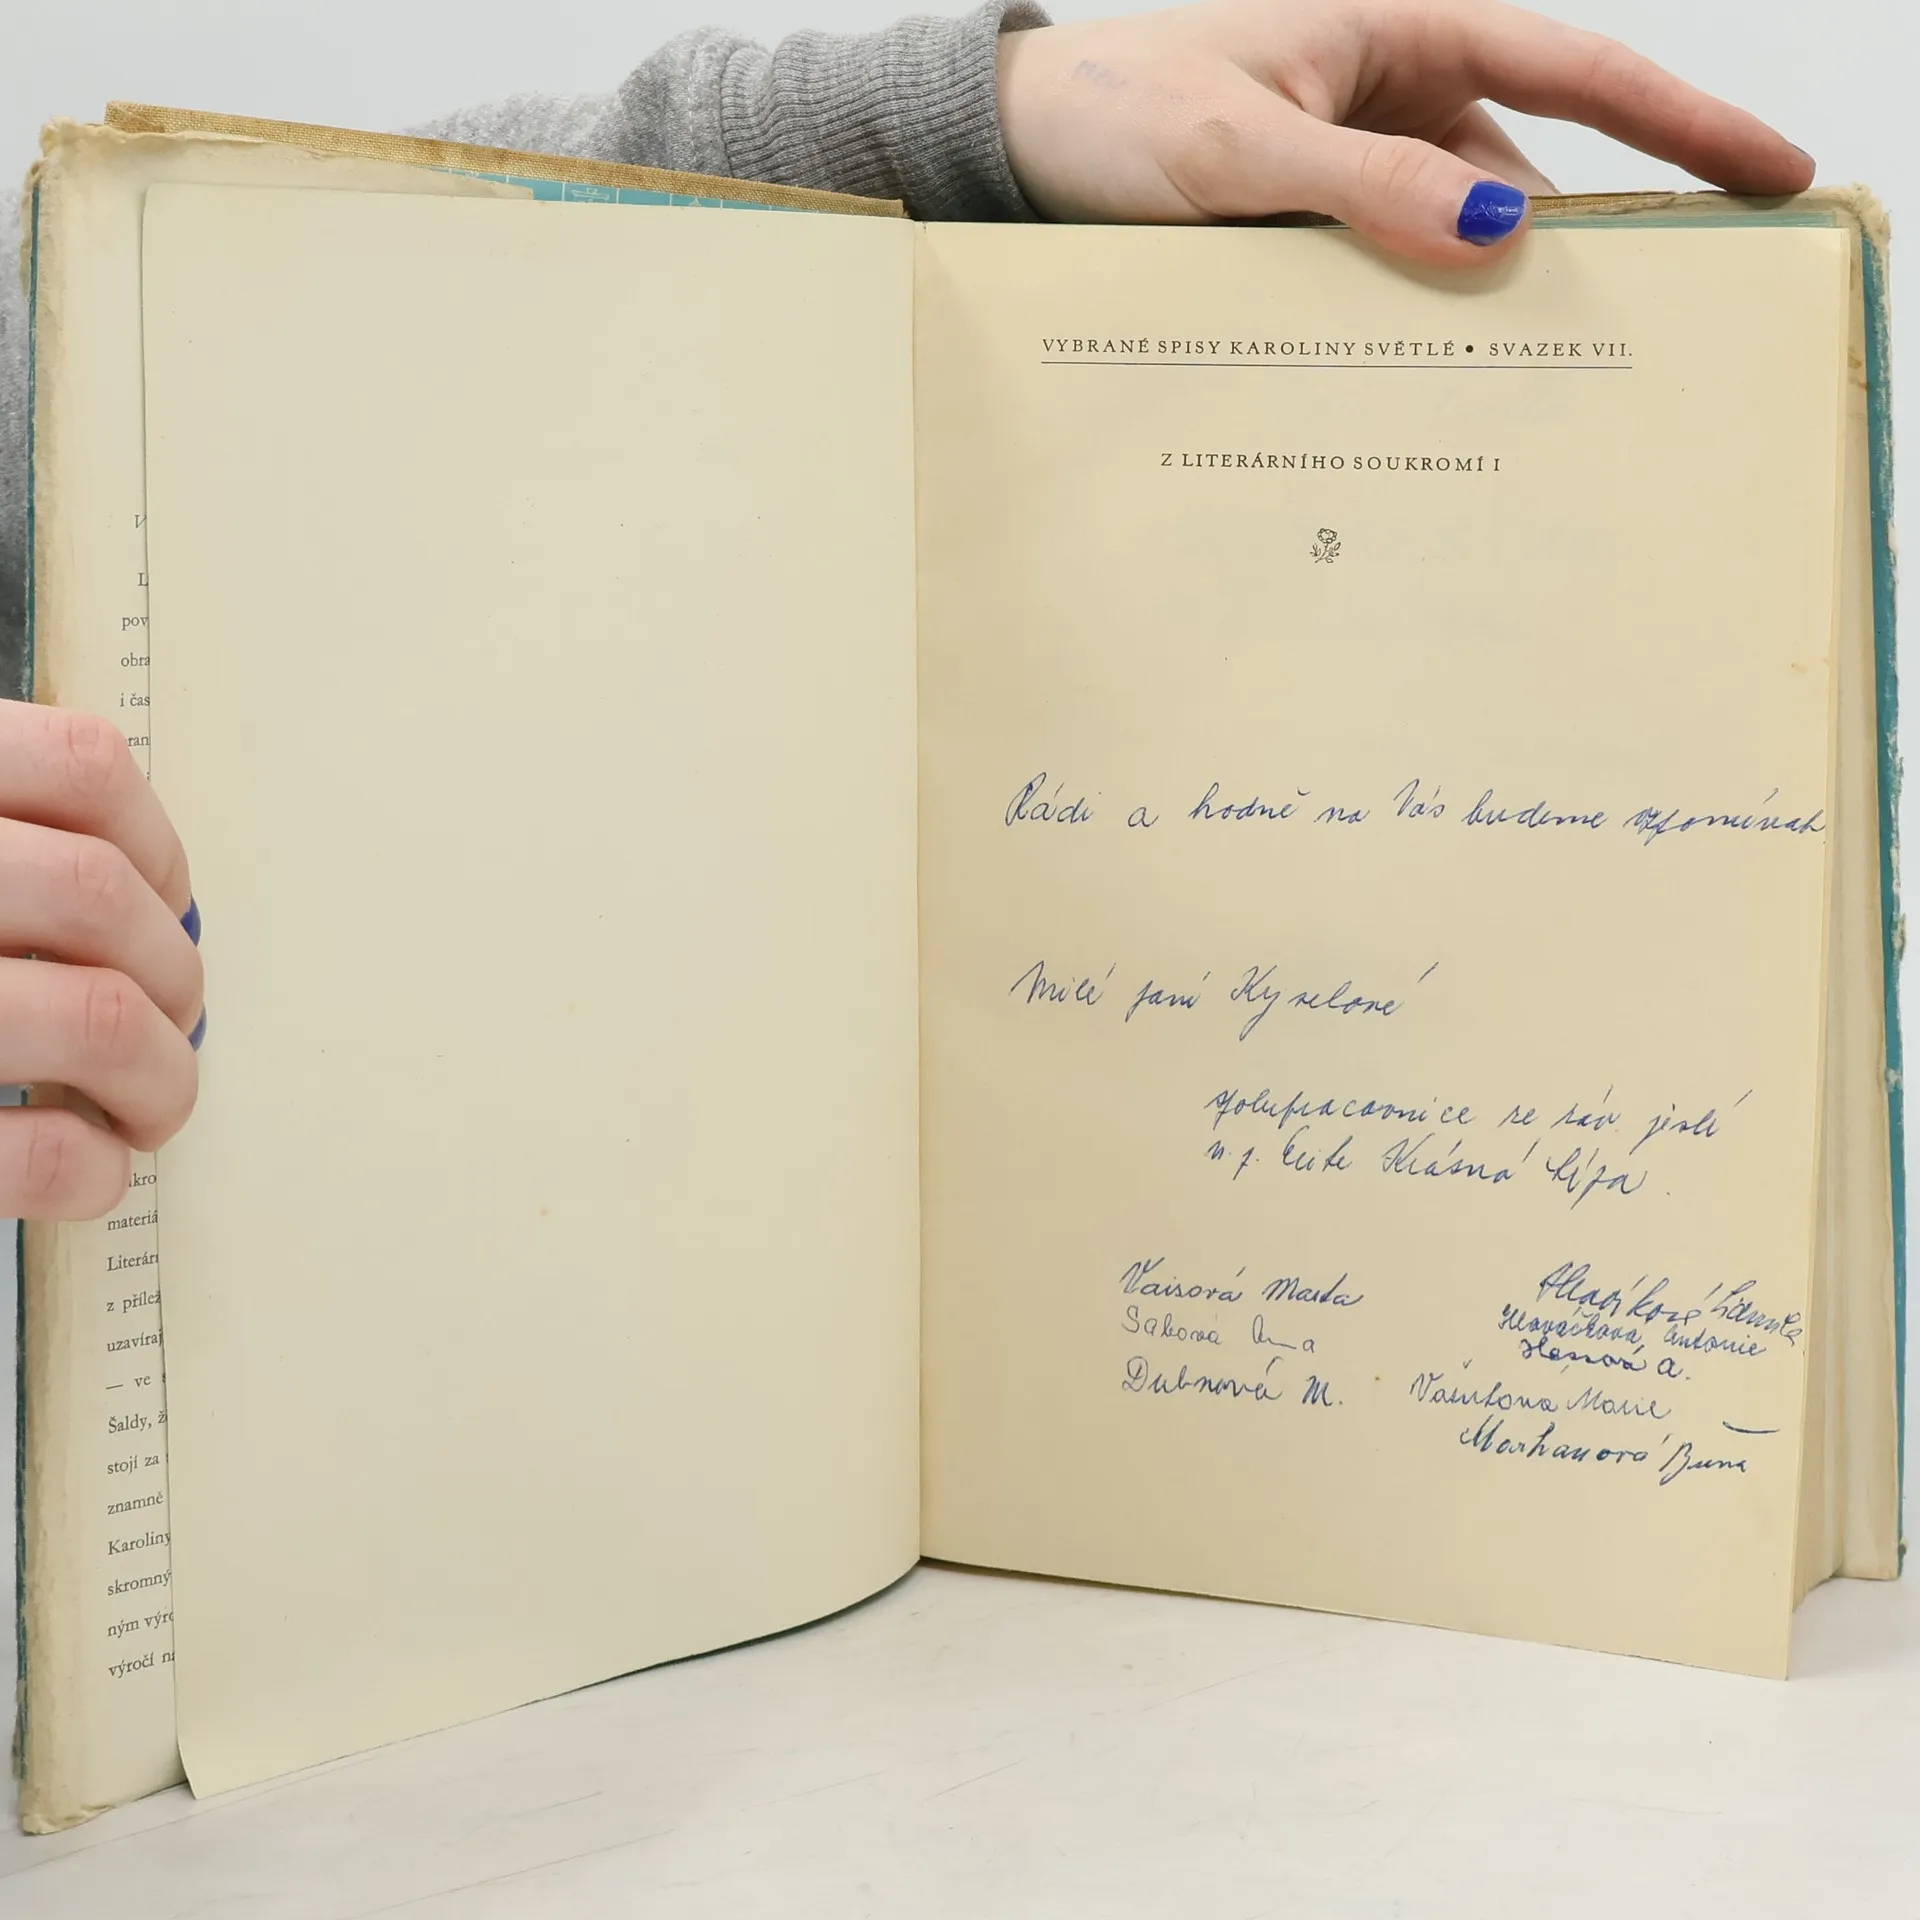 V
L
pov
obra
i čas
ran
kro
materiá
Literár
z přílež
uzavíraj
— ve
Šaldy, ž
stojí za
znamně
Karoliny
skromný
ným výro
výročí na
VYBRANÉ SPISY KAROLINY SVĚTLÉ • SVAZEK VII.
Z LITERÁRNÍHO SOUKROMÍ I
Rádi a hodně na Vás budeme vzpomínat.
Milé paní Kyselové
spolupracovnice ze záv. jeslí
n. p. Elite Krásná Lípa.
Vaisová Marta
Sabová Anna
Dubnová M.
Hladíková Libuše
Hlaváčková Antonie
Hessová A.
Vašutova Marie
MarhanováBěna